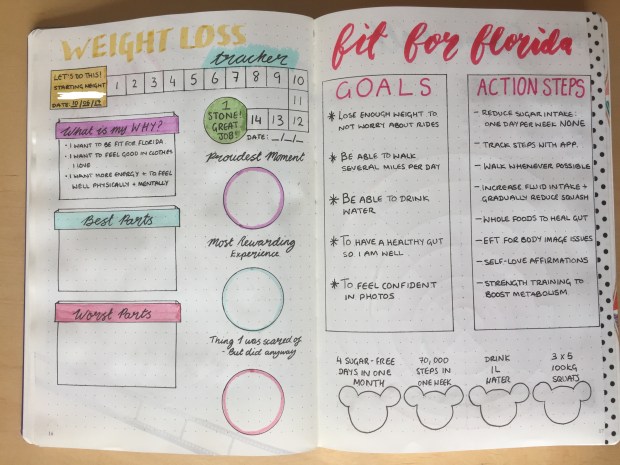 WEIGHT LOSS
tracker
LET'S DO THIS!
STARTING WEIGHT
1 2 3 4 5 6 7 8 9 10
11
14 13 12
1
STONE!
GREAT
JOB!!
DATE: _/_/_
What is my WHY?
• I WANT TO BE FIT FOR FLORIDA
• I WANT TO FEEL GOOD IN CLOTHES
I LOVE
• I WANT MORE ENERGY + TO FEEL
WELL PHYSICALLY + MENTALLY
Best Parts
Worst Parts
Proudest Moment
Most Rewarding
Experience
Thing I was scared of
- But did anyway
fit for florida
GOALS
* LOSE ENOUGH WEIGHT TO
NOT WORRY ABOUT RIDES
* BE ABLE TO WALK
SEVERAL MILES PER DAY
* BE ABLE TO DRINK
WATER
* TO HAVE A HEALTHY GUT
SO I AM WELL
* TO FEEL CONFIDENT
IN PHOTOS
ACTION STEPS
- REDUCE SUGAR INTAKE:
ONE DAY PER WEEK NONE
- TRACK STEPS WITH APP.
- WALK WHENEVER POSSIBLE
- INCREASE FLUID INTAKE +
GRADUALLY REDUCE SQUASH
- WHOLE FOODS TO HEAL GUT
- EFT FOR BODY IMAGE ISSUES
- SELF-LOVE AFFIRMATIONS
- STRENGTH TRAINING TO
BOOST METABOLISM
4 SUGAR-FREE
DAYS IN ONE
MONTH
70,000
STEPS IN
ONE WEEK
DRINK
1L
WATER
3 x 5
100KG
SQUATS